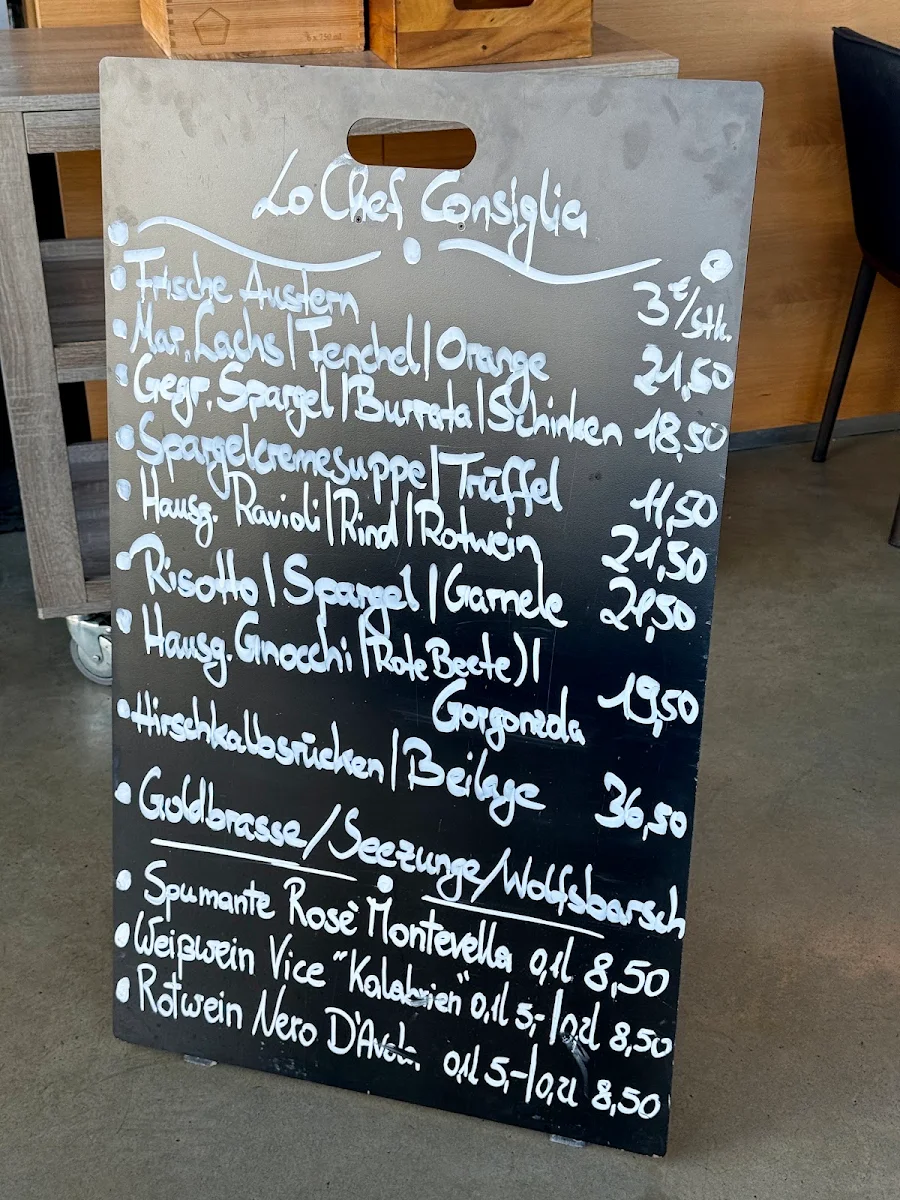 6 x 750 ml
Lo Chef Consiglia
Frische Austern 3€/Stk.
Mar. Lachs | Fenchel | Orange 21,50
Gegr. Spargel | Burrata | Schinken 18,50
Spargelcremesuppe | Trüffel 11,50
Hausg. Ravioli | Rind | Rotwein 21,50
Risotto | Spargel | Garnele 21,50
Hausg. Gnocchi (Rote Beete) |
Gorgonzola 19,50
Hirschkalbsrücken | Beilage 36,50
Goldbrasse / Seezunge / Wolfsbarsch
Spumante Rosè Montevella 0,1l 8,50
Weißwein Vice "Kalabrien" 0,1l 5,- | 0,2l 8,50
Rotwein Nero D'Avola 0,1l 5,- | 0,2l 8,50